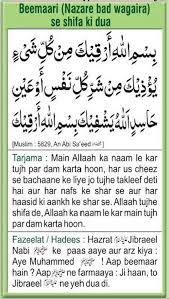 Beemaari (Nazare bad wagaira)
se shifa ki dua
بِسْمِ اللّٰهِ أَرْقِيْكَ مِنْ كُلِّ شَيْءٍ
يُؤْذِيْكَ مِنْ شَرِّ كُلِّ نَفْسٍ أَوْ عَيْنِ
حَاسِدٍ اَللّٰهُ يَشْفِيْكَ بِسْمِ اللّٰهِ أَرْقِيْكَ
[Muslim : 5829, An Abi Sa'eed]
Tarjama : Main Allaah ka naam le kar
tujh par dam karta hoon, har us cheez
se bachaane ke liye jo tujhe takleef deti
hai aur har nafs ke shar se aur har
haasid ki aankh ke shar se. Allaah tujhe
shifa de, Allaah ka naam le kar main tujh
par dam karta hoon.
Fazeelat / Hadees : Hazrat Jibraeel
Nabi ke paas aaye aur arz kiya :
Aye Muhammed ! Aap beemaar
hain ? Aap ne farmaaya : Ji haan, to
Jibraeel ne yeh dua di.